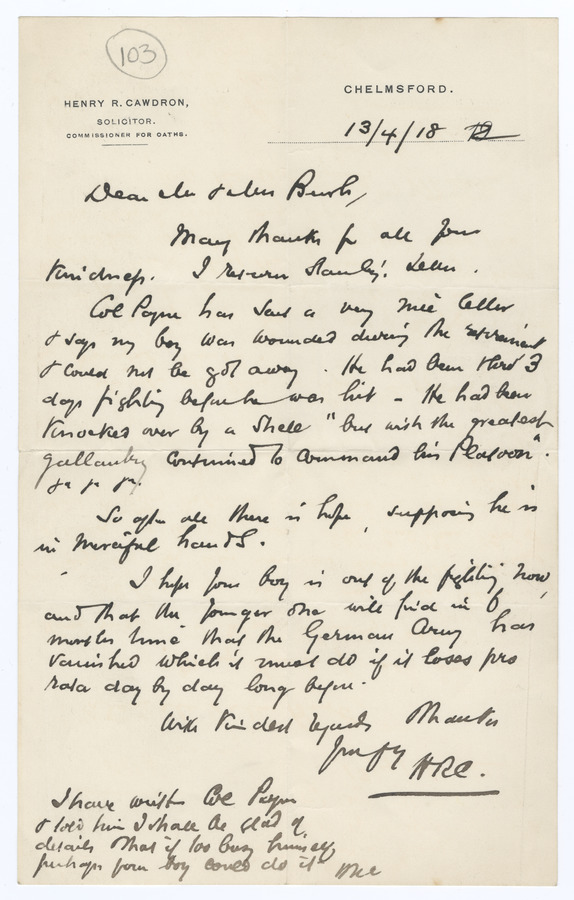 103
HENRY R. CAWDRON,
SOLICITOR.
COMMISSIONER FOR OATHS.
CHELMSFORD.
13/4/18
Dear Mr & Mrs Bush,
Many thanks for all your
kindness. I return Stanley's letter.
Col Payne has sent a very nice letter
& says my boy was wounded during the retirement
& could not be got away. He had been thro' 3
days fighting before he was hit – He had been
knocked over by a shell "but with the greatest
gallantry continued to command his Platoon".
So after all there is hope, supposing he is
in merciful hands.
I hope your boy is out of the fighting now,
and that the younger one will find in 6
months time that the German Army has
vanished which it must do if it loses pro
rata day by day long before.
With kindest regards thanks
HRC.
I have written Col Payne
& told him I shall be glad of
details that if too busy himself
perhaps your boy could do it HRC